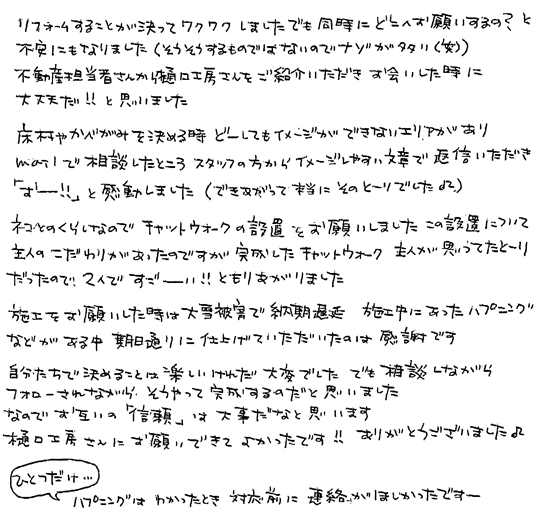 リフォームすることが決ってワクワクしましたでも同時にどこへお願いするの？と
不安にもなりました（そうそうするものではないのでナゾがタタリ（笑）
不動産担当者さんから樋口工房さんをご紹介いただきお会いした時に
大丈夫だ!!と思いました
床材やかべがみを決める時どーしてもイメージができないエリアがあり
mailで相談したところスタッフの方からイメージしやすい文章で返信いただき
「おー!!」と感動しました（できあがって本当にそのとーりでした♫）
ネコとのくらしなのでキャットウォークの設置をお願いしましたこの設置について
主人のこだわりがあったのですが完成したキャットウォーク主人が思ってたとーり
だったので、2人ですごーい!!ともりあがりました
施工をお願いした時は大雪被害で納期遅延 施工中にあったハプニング
などがある中期日通りに仕上げていただいたのは感謝です
自分たちで決めることは楽しいけれだ大変でした でも相談しながら
フォローされながら、そうやって完成するのだと思いました
なのでお互いの「信頼」は大事だなと思います
樋口工房さんにお願いできてよかったです!! ありがとうございました♫
ひとつだけ…
ハプニングはわかったとき対応前に連絡がほしかったですー